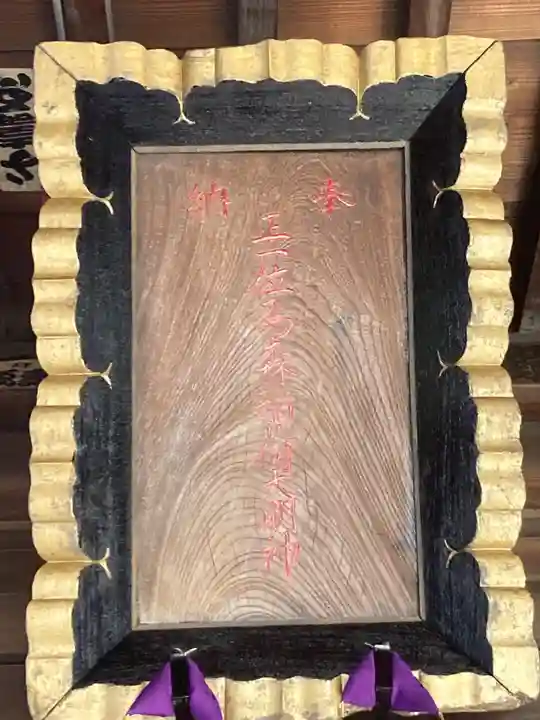 奉納
正一位高森稲荷大明神